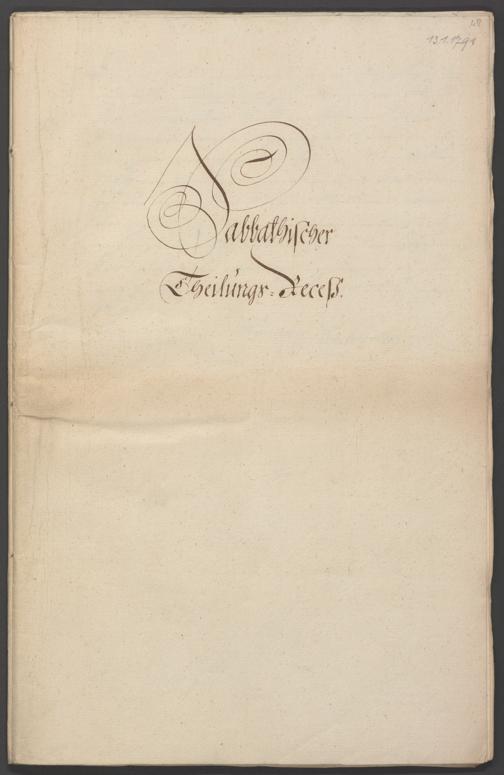 48
13.1.1791
Sabbathischer
Theilungs-Recess.